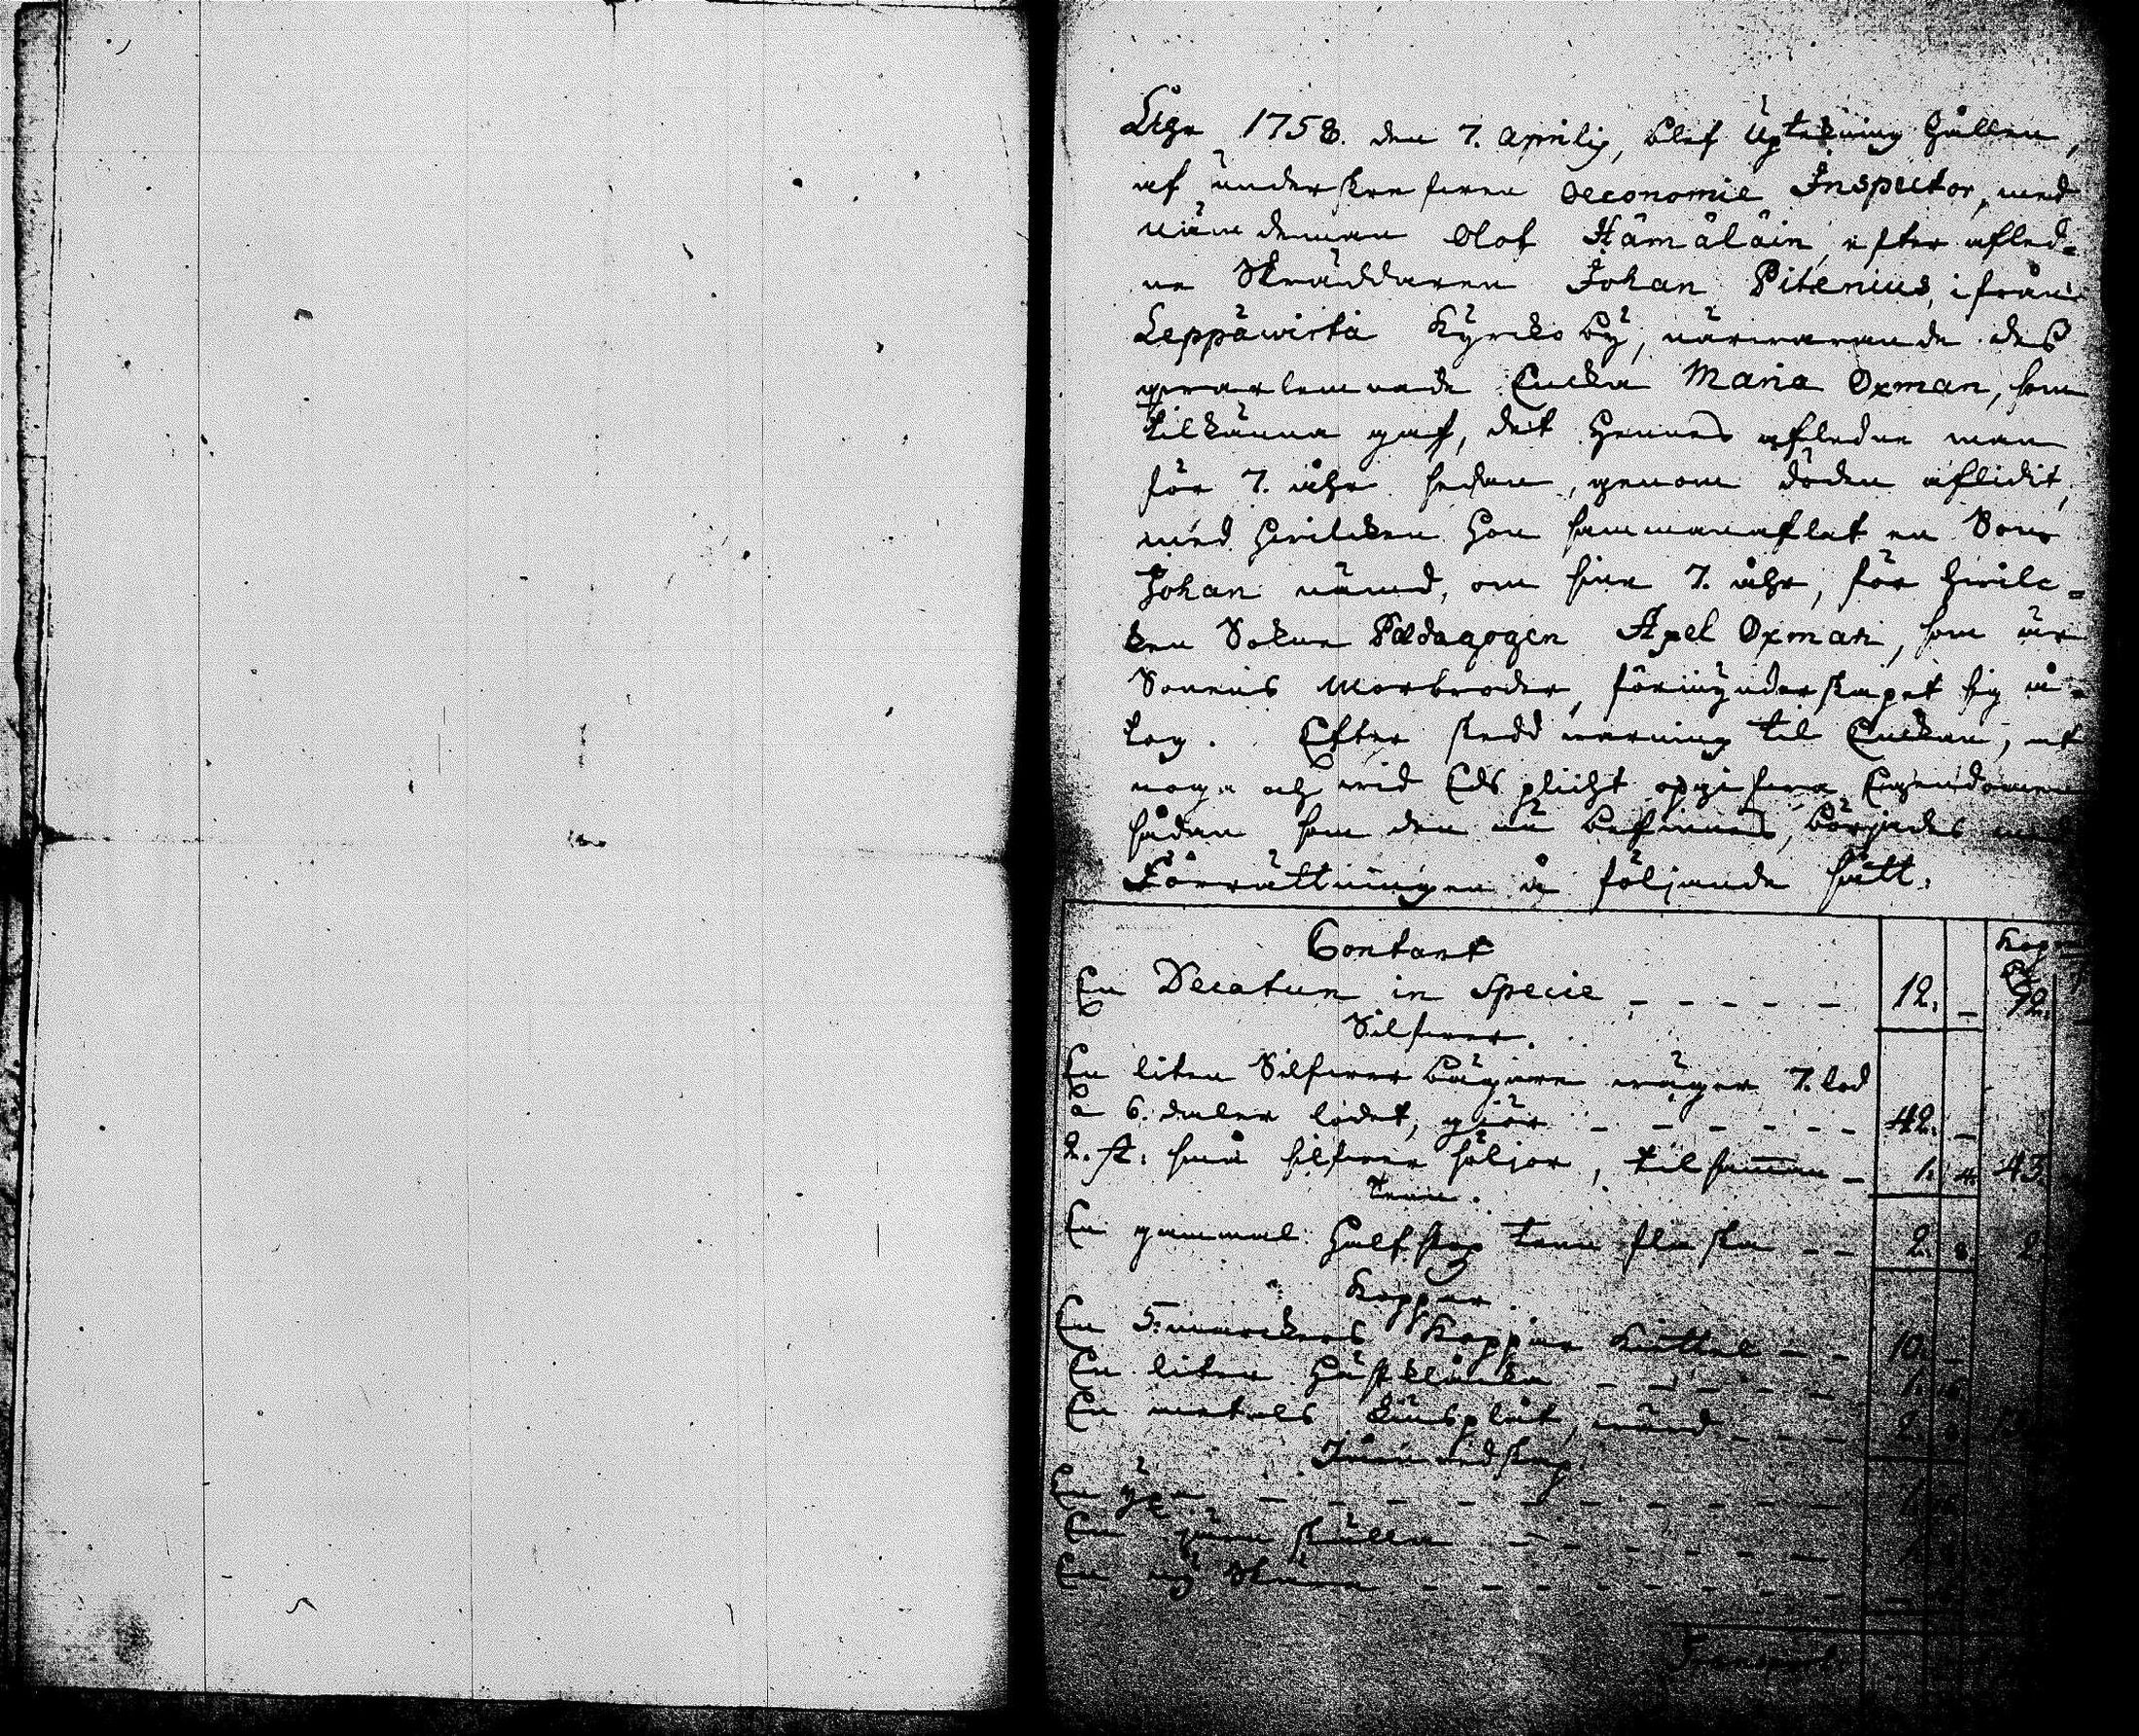 Åhr 1758. den 7. Aprilis, blef Uptekning hållen,
af underskrefwen Oeconomie Inspector, med
nämdeman Olof Hämäläin, efter afled-
ne Skräddaren Johan Pitenius, ifrån
Leppäwirta Kyrkoby, närwarande dess
qwarlemnade Encka Maria Oxman, som
tilkänna gaf, det hennes afledne man
för 7. åhr sedan, genom döden aflidit,
med hwilcken hon sammanaflat en Son
Johan nämd, om sine 7. åhr, för hwilc-
ken Sokne Pædagogen Axel Oxman, som är
Sonens Morbroder, förmynderskapet sig å-
tog. Efter skedd warning til Enckan, at
noga och wid Eds plicht opgifwa Egendomen
sådan som den nu befinnes, börjades med
Förrättningen å följande sätt.
Contant Kop
En Ducatun in Specie - - - - - 12. - 12. -
Silfwer.
En liten Silfwer bägare wäger 7. lod
à 6. daler lodet, giör - - - - - - 42. -
2. st. små silfwer söljor, tilsamman - 1. 4. 43.
Tenn.
En gammal halfstop tenn flaska - - 2. 8. 2.
Koppar
En 5. marckers Koppar Kiettel - - 10. -
En liten hästklåcka - - - - - - 1.
En metals liusplåt, - - - - 2.
Järn redskap.
En yxa - - - - - - - - - - 1.
En järn skålla - - - - - - -
En ny Skära - - - - - - - -
Transport.